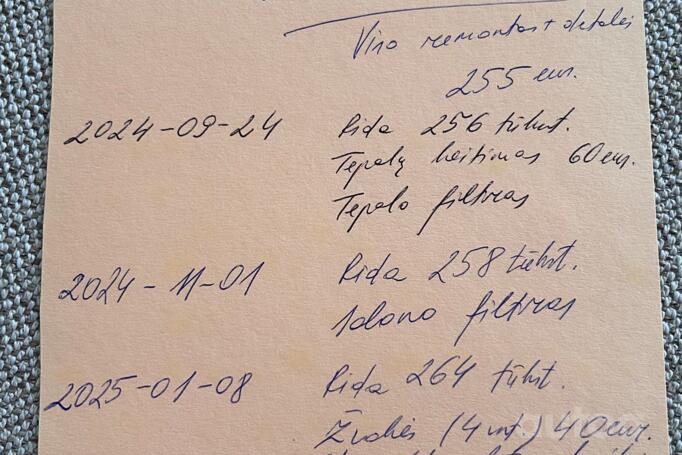 Viso remontas + detalės
255 eur.
2024-09-24 Rida 256 tūkst.
Tepalų keitimas 60 eur.
Tepalo filtras
2024-11-01 Rida 258 tūkst.
Salono filtras
2025-01-08 Rida 264 tūkst.
Žvakės (4 vnt.) 40 eur.